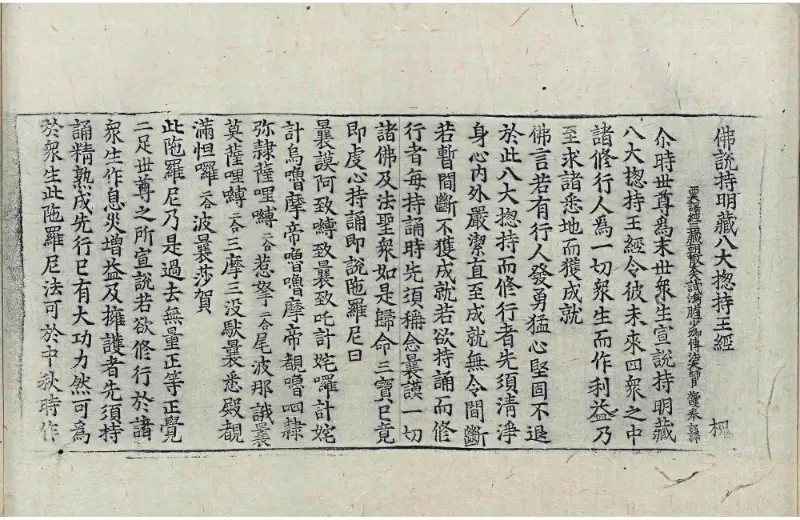 佛說持明藏八大揔持王經　槐
西天譯經三藏朝散大夫試鴻臚少卿傳法大師臣 施護奉 詔譯
尒時世尊為末世衆生宣說持明藏
八大揔持王經令彼未來四衆之中
諸修行人爲一切衆生而作利益乃
至求諸悉地而獲成就
佛言若有行人發勇猛心堅固不退
於此八大揔持而修行者先須清淨
身心內外嚴潔直至成就無令間斷
若暫間斷不獲成就若欲持誦而修
行者每持誦時先須稱念曩謨一切
諸佛及法聖衆如是歸命三寶已竟
即虔心持誦即說陁羅尼曰
曩謨阿致嚩致曩致吒計姹囉計姹
計烏嚕摩帝嚕嚕摩帝覩嚕呬隸
弥隸薩哩嚩二合惹拏二合尾波那誐曩
莫薩哩嚩二合三摩三没馱曩悉殿覩
滿怛囉二合波曩莎賀
此陁羅尼乃是過去無量正等正覺
二足世尊之所宣說若欲修行於諸
衆生作息災增益及擁護者先須持
誦精熟成先行已有大功力然可為
於衆生此陁羅尼法可於中秋時作